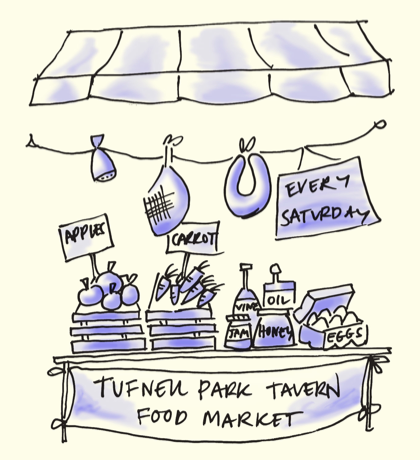 EVERY
SATURDAY
APPLES
CARROT
WINE
OIL
JAM
HONEY
EGGS
TUFNELL PARK TAVERN
FOOD MARKET